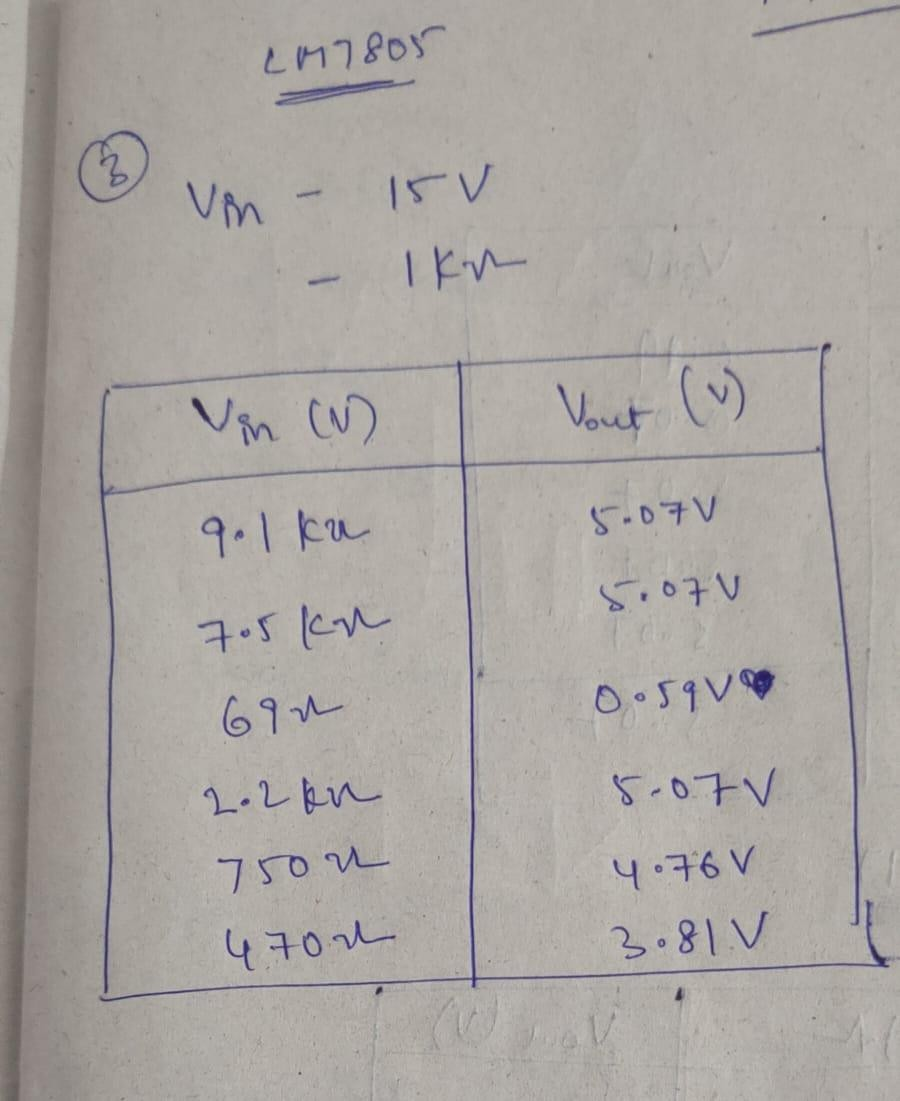 LM7805
3
Vin - 15V
- 1KΩ
Vin (V) Vout (V)
9.1 KΩ 5.07V
7.5 KΩ 5.07V
69Ω 0.59V
2.2 KΩ 5.07V
750Ω 4.76V
470Ω 3.81V